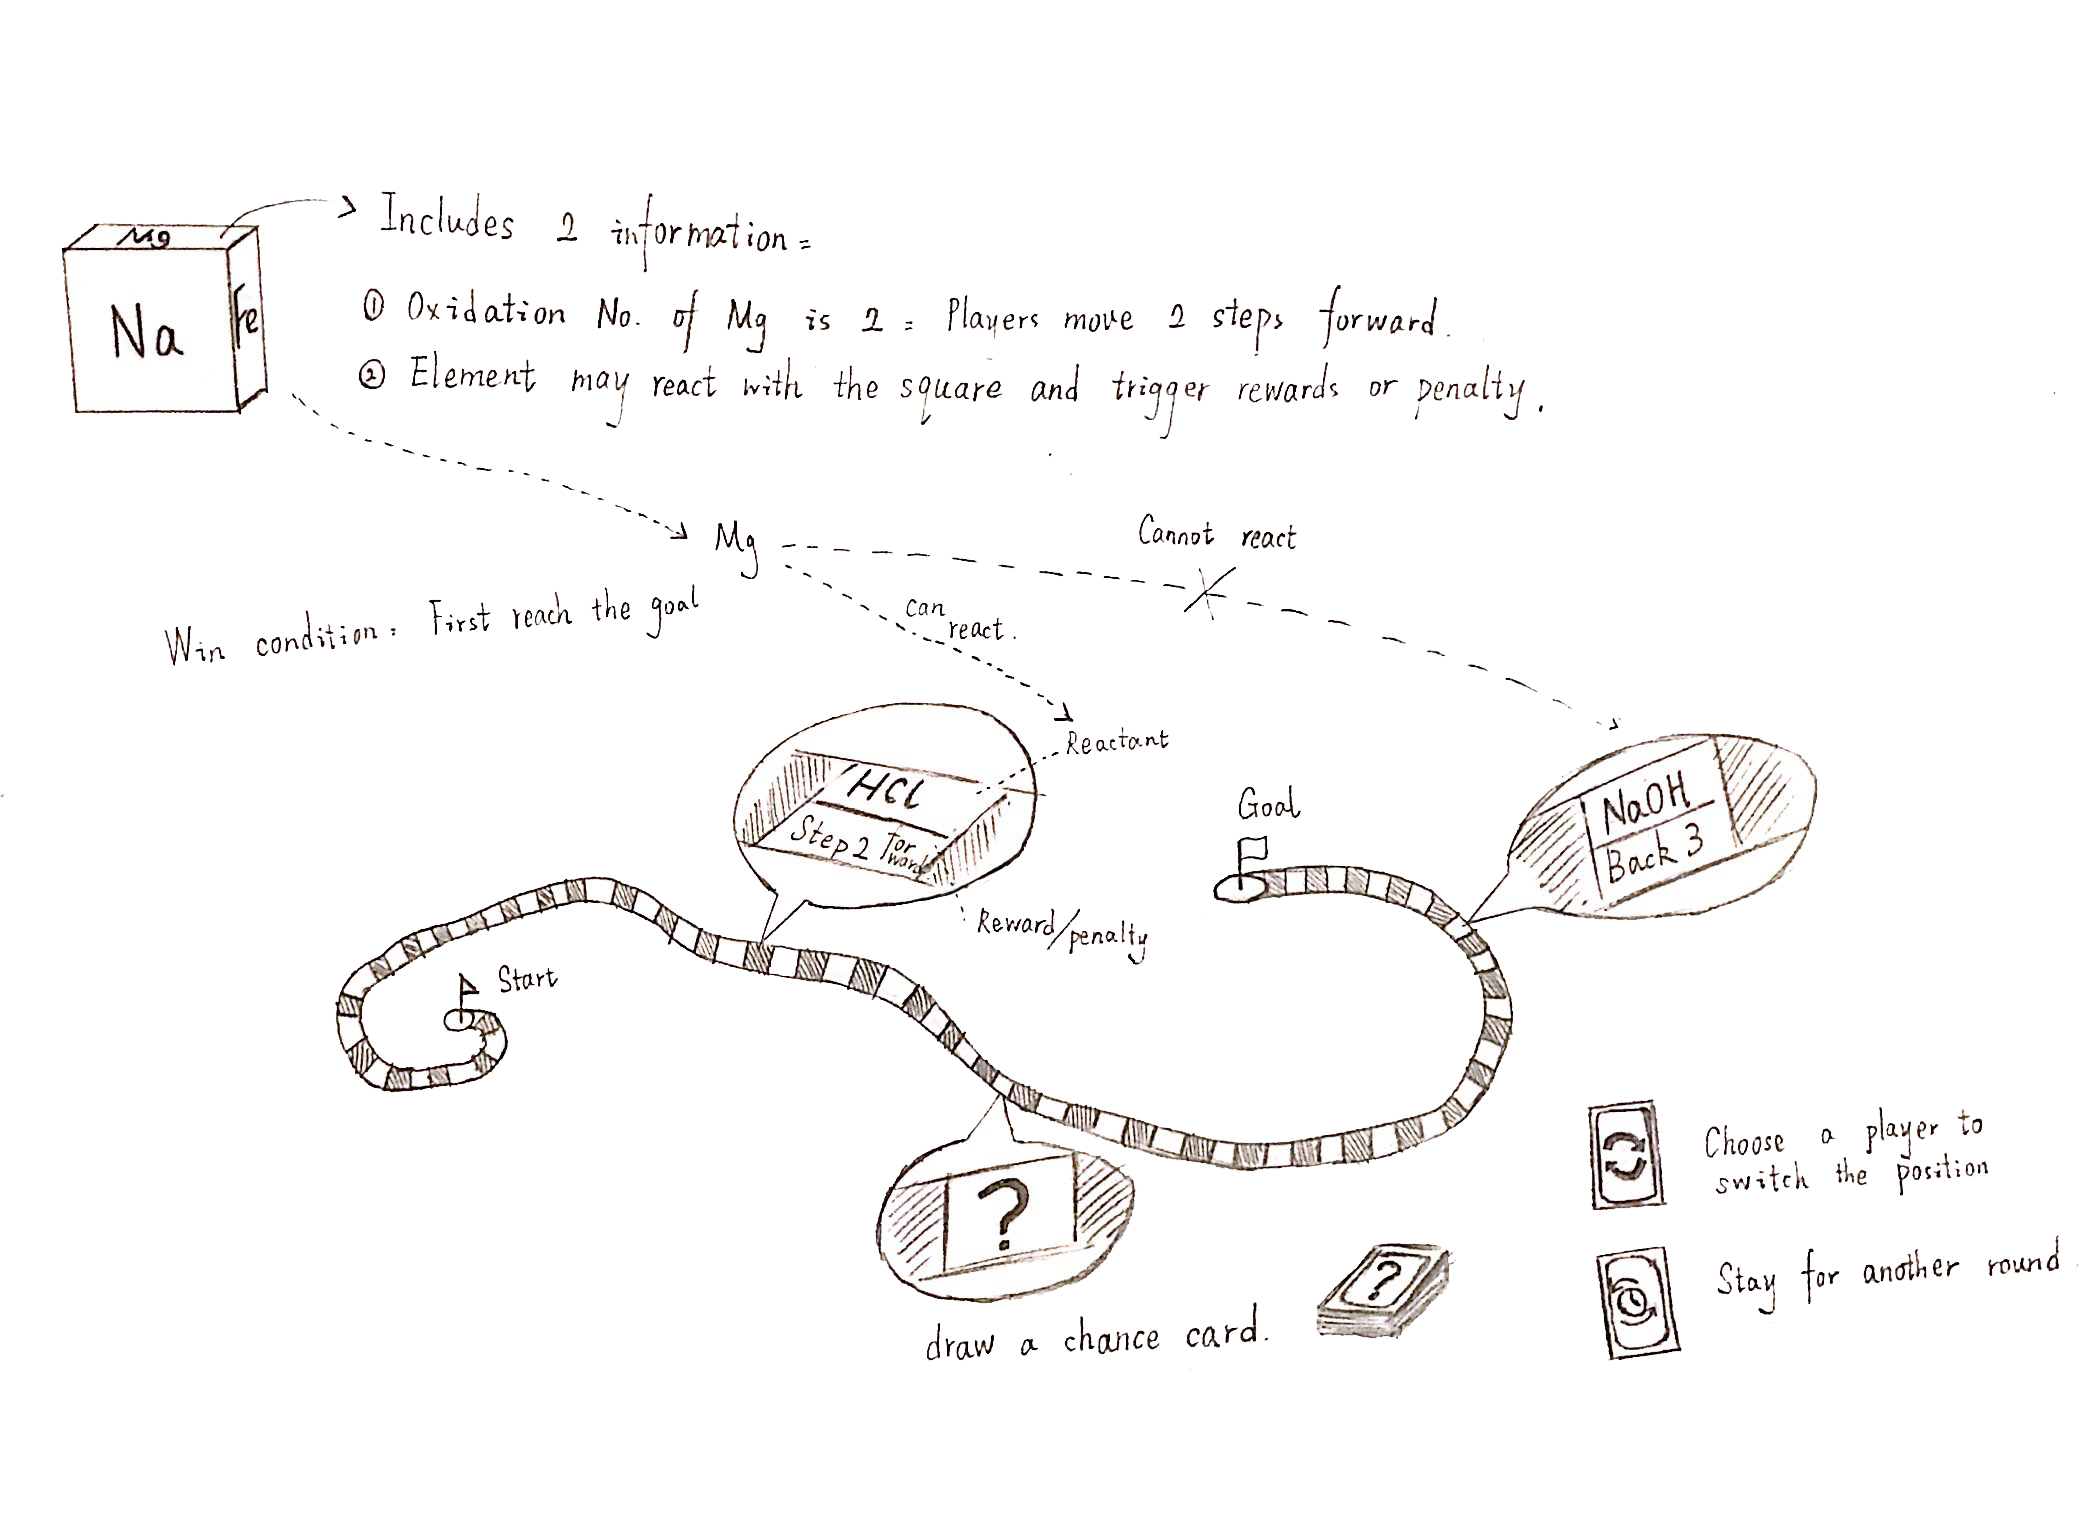 Mg
Na
Fe
Includes 2 information =
① Oxidation No. of Mg is 2 = Players move 2 steps forward.
② Element may react with the square and trigger rewards or penalty.
Mg
Cannot react
can
react.
Win condition = First reach the goal
Reactant
HCl
Step 2 for
ward
Reward/penalty
Goal
NaOH
Back 3
Start
?
draw a chance card.
?
Choose a player to
switch the position
Stay for another round